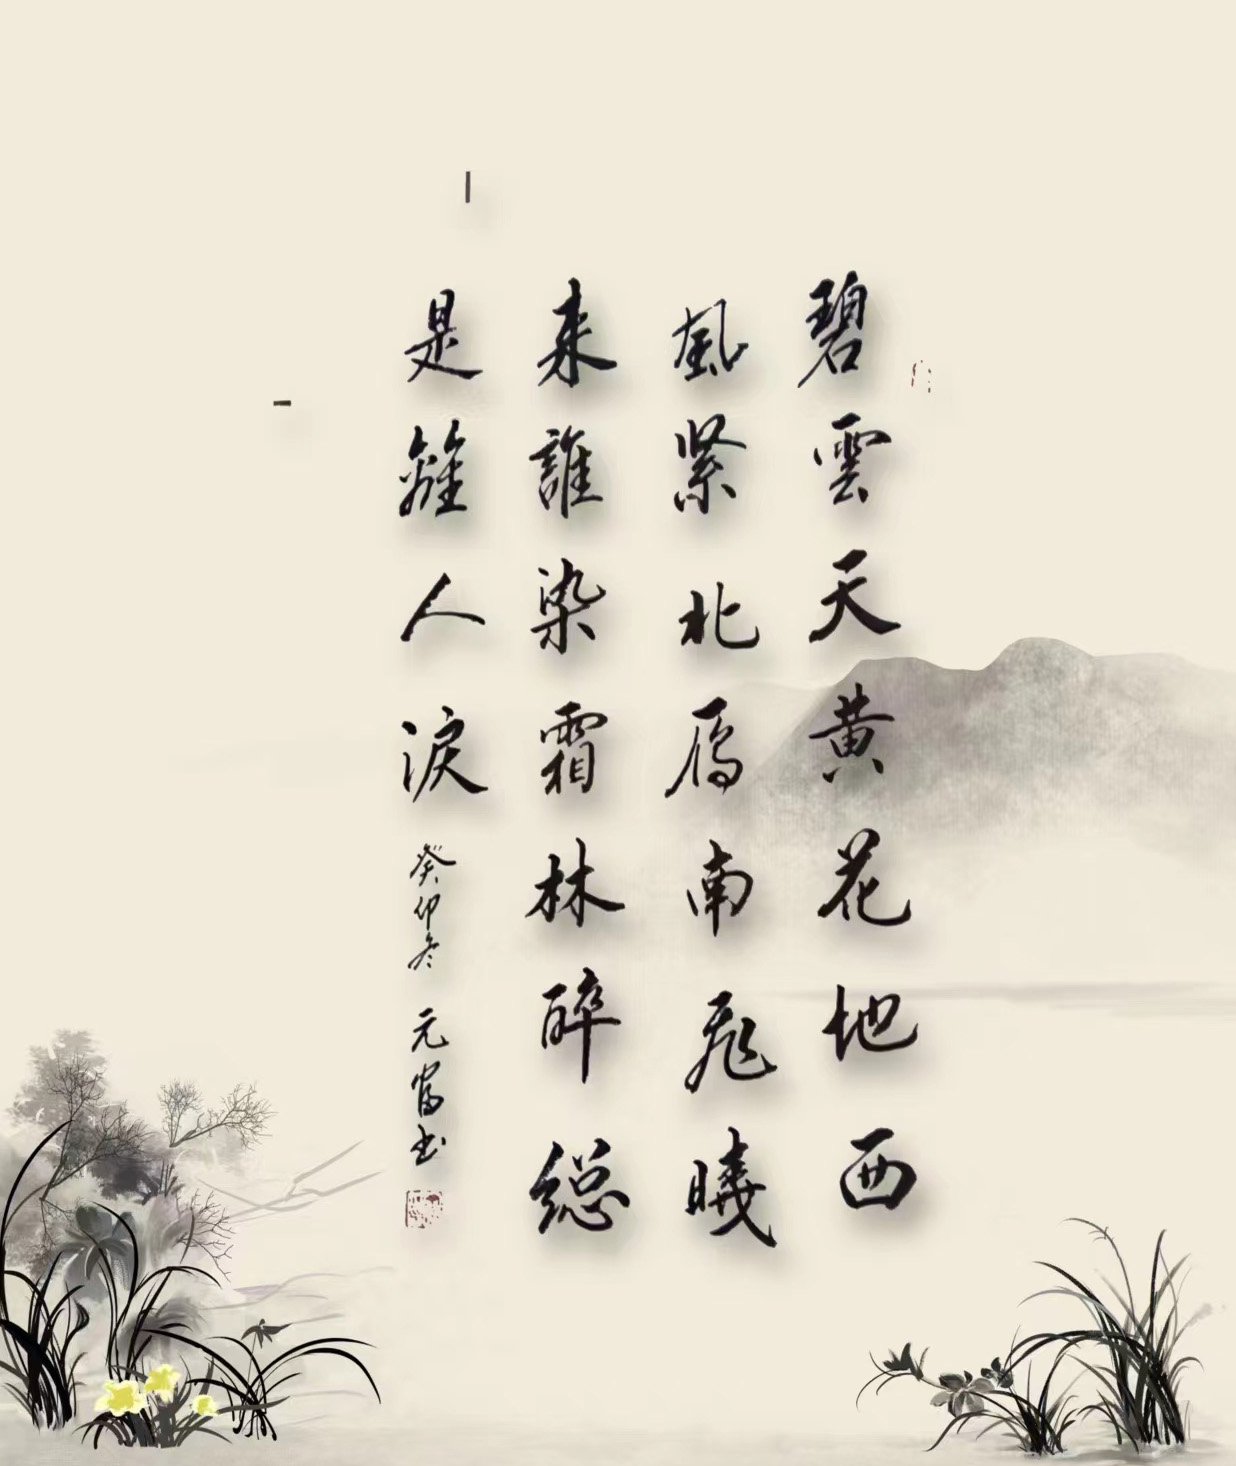 碧雲天黄花地西
風緊北雁南飛曉
来誰染霜林醉總
是離人淚
癸卯冬
元富书